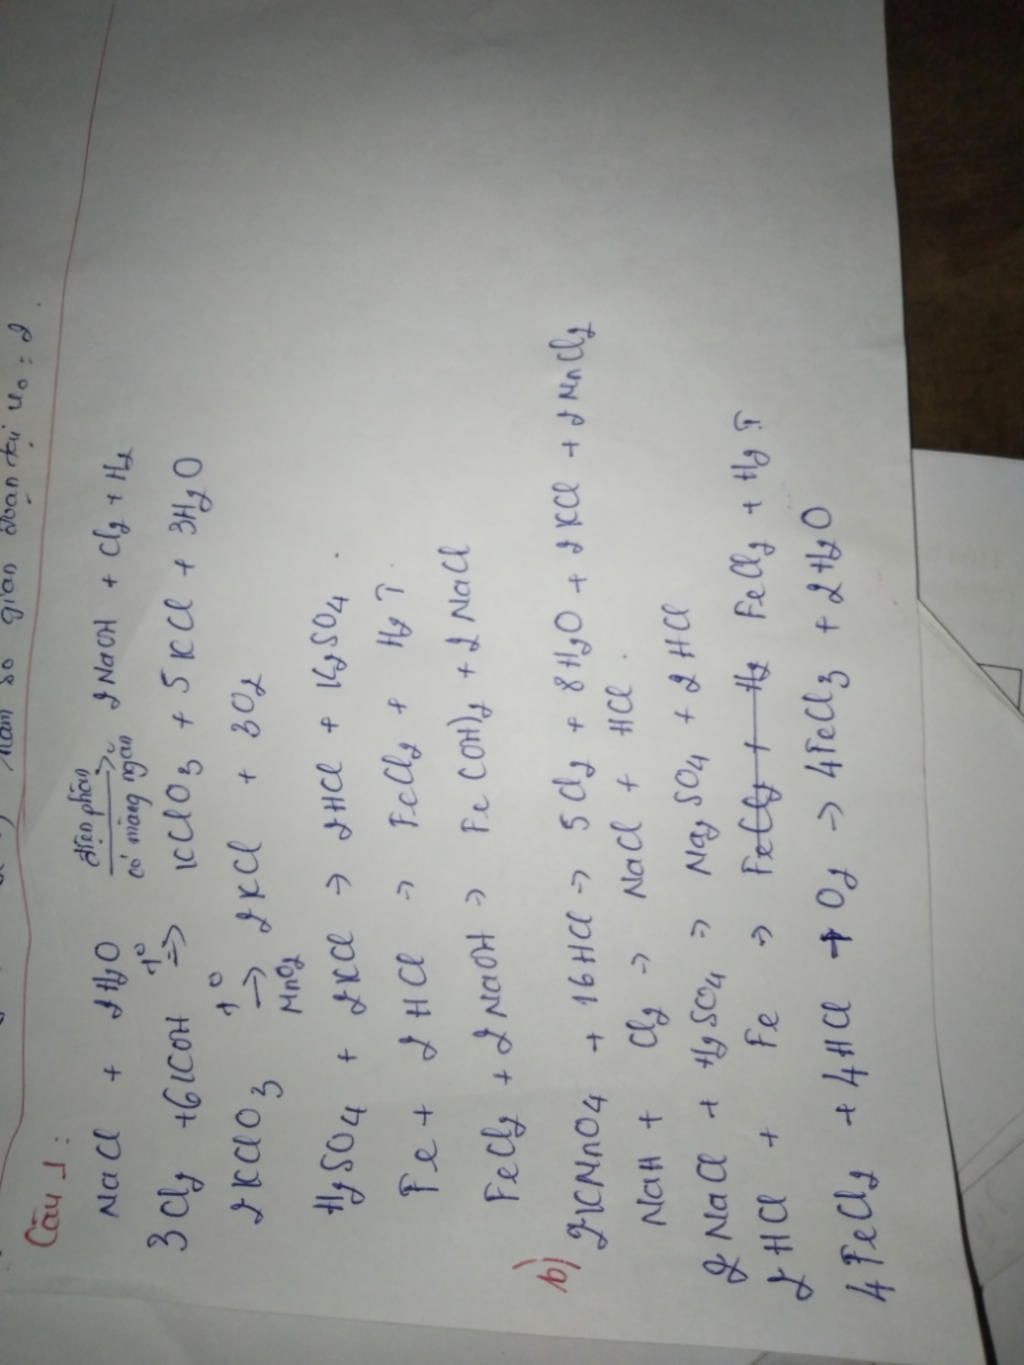 gian đoạn
Câu 1:
NaCl + 2H2O điện phân → có màng ngăn 2NaOH + Cl2 + H2
3Cl2 + 6KOH t° => KClO3 + 5KCl + 3H2O
2KClO3 t° → MnO2 2KCl + 3O2
H2SO4 + 2KCl → 2HCl + K2SO4.
Fe + 2HCl → FeCl2 + H2↑.
FeCl2 + 2NaOH → Fe(OH)2 + 2NaCl
b) 2KMnO4 + 16HCl → 5Cl2 + 8H2O + 2KCl + 2MnCl2
NaH + Cl2 → NaCl + HCl.
2NaCl + H2SO4 → Na2SO4 + 2HCl
2HCl + Fe → FeCl2 + H2 FeCl2 + H2↑
4FeCl2 + 4HCl + O2 → 4FeCl3 + 2H2O